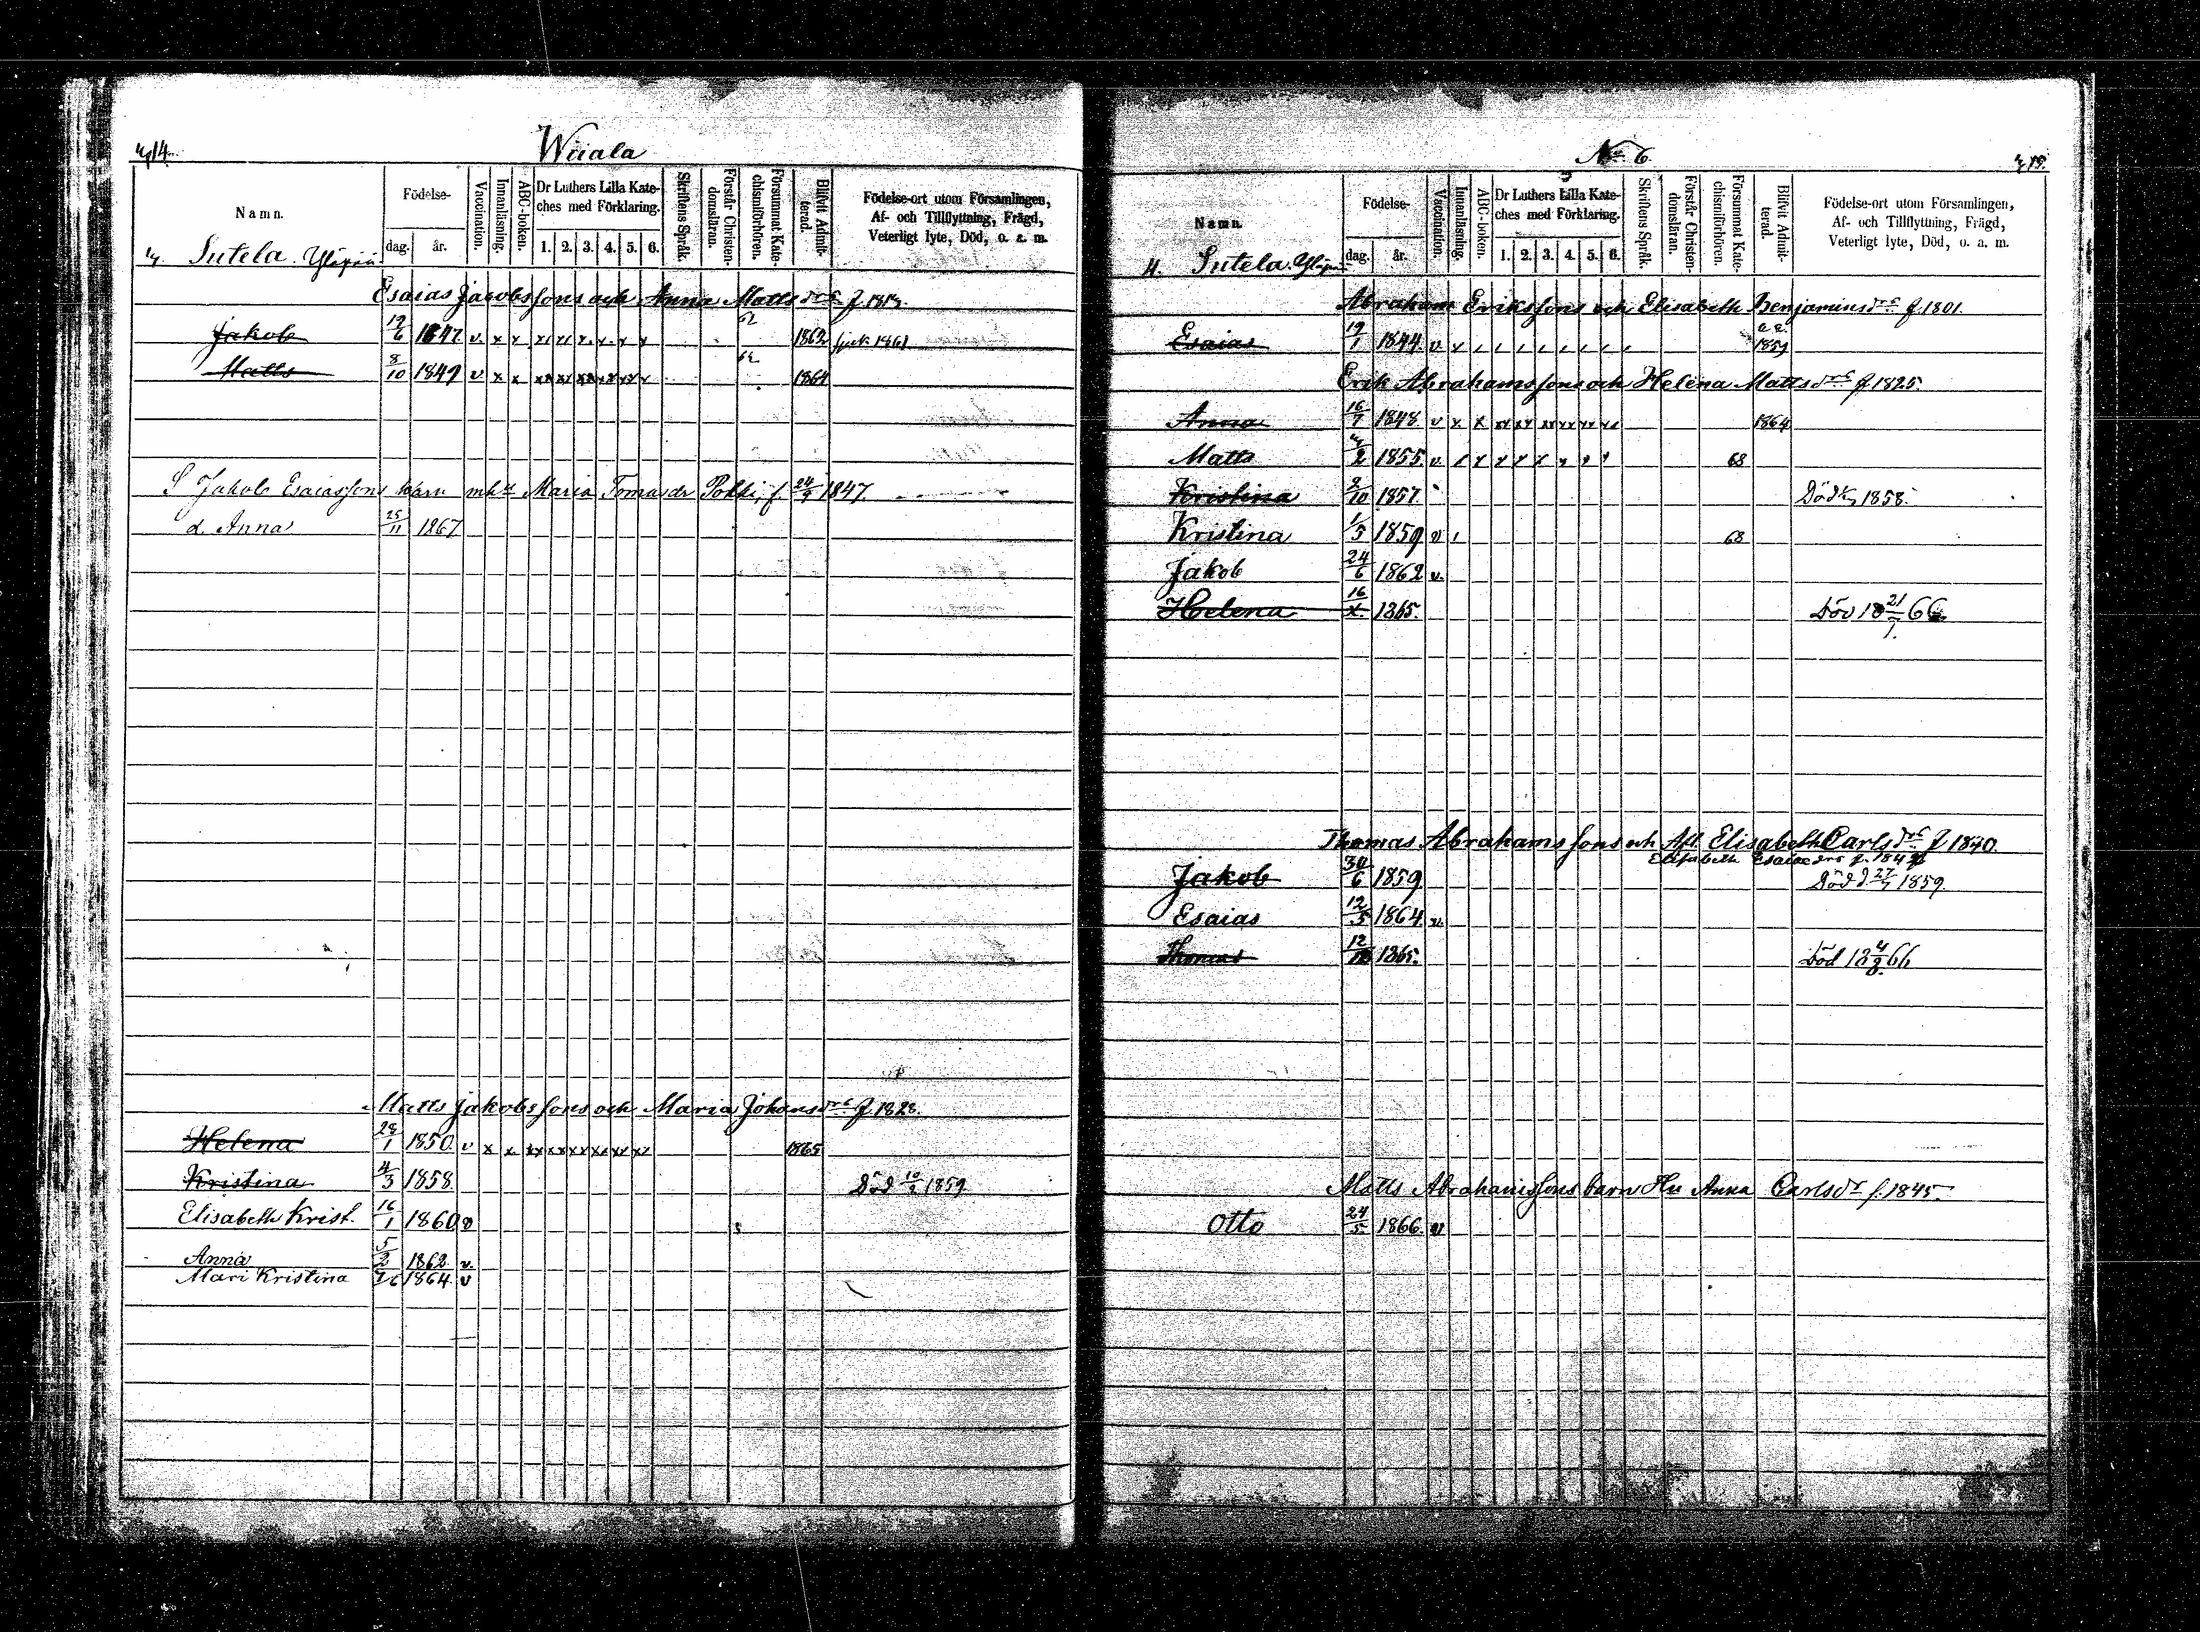 414.
Wäala
Namn.
Födelse-
dag. år.
Vaccination.
Innanläsning.
ABC-boken.
Dr Luthers Lilla Kate-
ches med Förklaring.
1. 2. 3. 4. 5. 6.
Skriftens Språk.
Förstår Christen-
domsläran.
Försummat Kate-
chismiförhören.
Blifvit Admit-
terad.
Födelse-ort utom Församlingen,
Af- och Tillflyttning, Frägd,
Veterligt lyte, Död, o. a. m.
4. Sutela. Yläpää
Esaias Jacobssons och Anna Mattsdrs f. 1813.
Jakob 19/6 1847 v x x xx xx x x x x 62 1862 1861
Matts 8/10 1849 v x x xx xx xx xx xx x 62 1864
S Jakob Esaiassons barn mh Maria Tomasdr Pokki, f. 24/9 1847
d. Anna 25/11 1867
Matts Jakobssons och Maria Johansdrs f. 1828.
Helena 28/1 1850. v x x xx xx xx xx xx xx 1865
Kristina 4/3 1858. Död 10/2 1859
Elisabeth Krist. 16/1 1860 v
Anna 5/2 1862 v.
Mari Kristina 1864. v
No 6.
415.
Namn.
Födelse-
dag. år.
Vaccination.
Innanläsning.
ABC-boken.
Dr Luthers Lilla Kate-
ches med Förklaring.
1. 2. 3. 4. 5. 6.
Skriftens Språk.
Förstår Christen-
domsläran.
Försummat Kate-
chismiförhören.
Blifvit Admit-
terad.
Födelse-ort utom Församlingen,
Af- och Tillflyttning, Frägd,
Veterligt lyte, Död, o. a. m.
4. Sutela. Yläpää
Abraham Erikssons och Elisabeth Benjaminsdrs f. 1801.
Esaias 19/1 1844. v x 1859
Erik Abrahamssons och Helena Mattsdrs f. 1825.
Anna 16/7 1848 v x x xx xx xx xx xx xx 1864
Matts 4/2 1855. v. 68
Kristina 2/10 1857. Död 1858.
Kristina 1/5 1859 v 68
Jakob 24/6 1862 v.
Helena 16/X. 1865. Död 18 21/1. 66
Thomas Abrahamssons och Afl Elisabeth Carlsdrs f 1840.
Elisabeth Esaiaedrs f. 184
Jakob 30/6 1859 Död d. 27/7 1859.
Esaias 12/5 1864. v.
Thomas 12/ 1865. Död 18 4/8. 66
Matts Abrahamssons barn Hu Anna Carlsdr f. 1845.
Otto 24/5. 1866. v